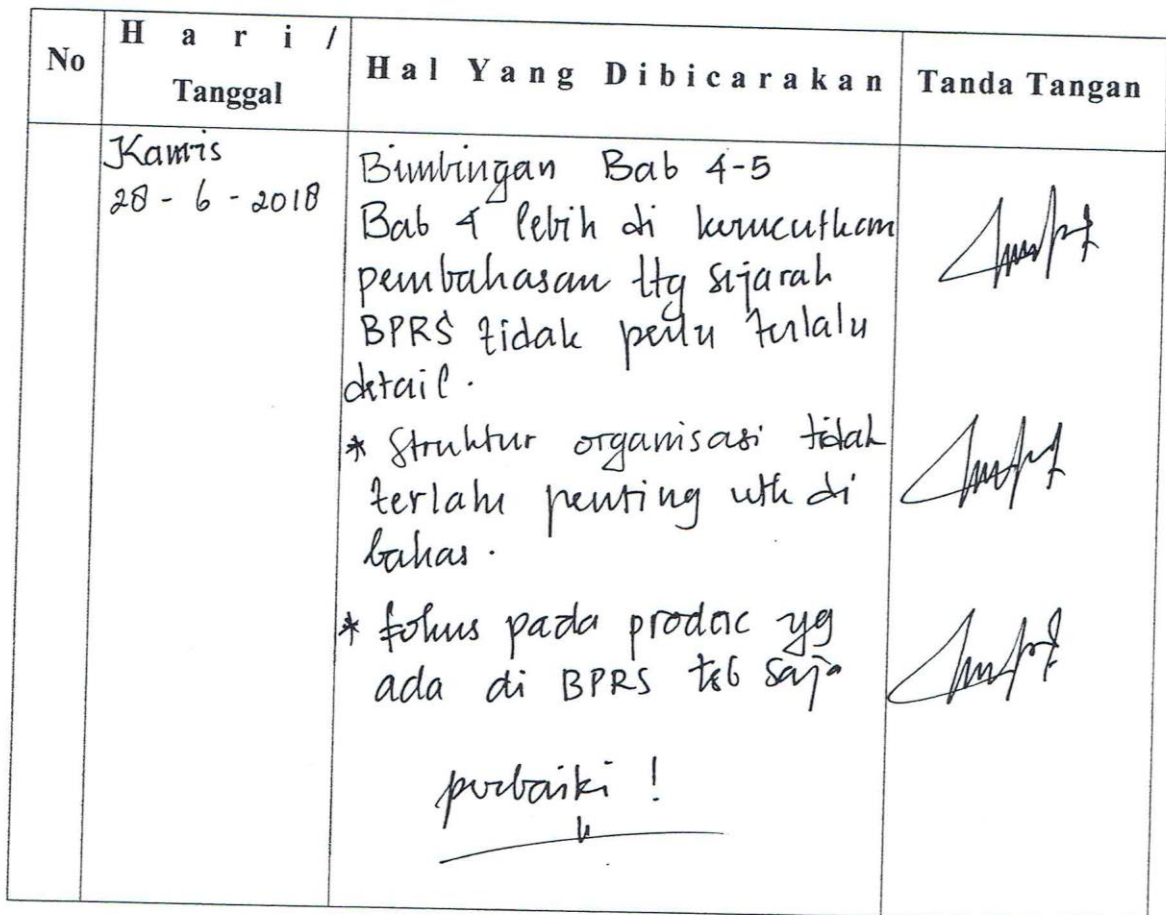 No
H a r i /
Tanggal
Hal Yang Dibicarakan
Tanda Tangan
Kamis
28 - 6 - 2018
Bimbingan Bab 4-5
Bab 4 lebih di kerucutkan
pembahasan ttg sejarah
BPRS tidak perlu terlalu
detail.
* Struktur organisasi tidak
terlalu penting utk di
bahas.
* fokus pada yg
ada di BPRS tsb saja
perbaiki !